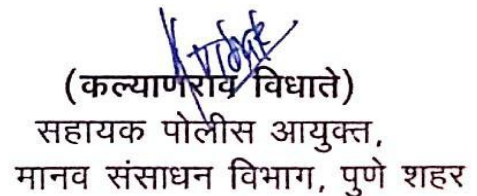 (कल्याणराव विधाते)
सहायक पोलीस आयुक्त,
मानव संसाधन विभाग, पुणे शहर